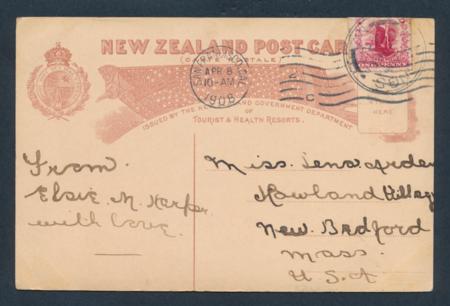 NEW ZEALAND POST CAR
(CARTE POSTALE)
APR 8
10-AM
1908
ONE PENNY
ISSUED BY THE NEW ZEALAND GOVERNMENT DEPARTMENT
OF
TOURIST & HEALTH RESORTS.
HERE
From
Elsie M. Harper
with love.
Miss Lena Arden
Howland Village
New Bedford
Mass.
U.S.A